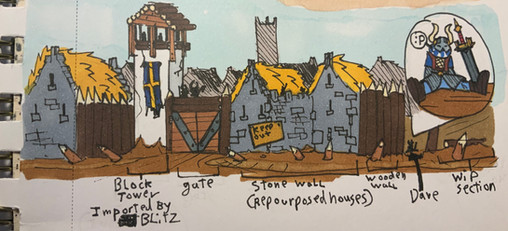 :P
Keep
out
Block
Tower
Imported By
BLiTZ
gate
Stone wall
(Repurposed houses)
wooden
wall
Dave
WiP
section